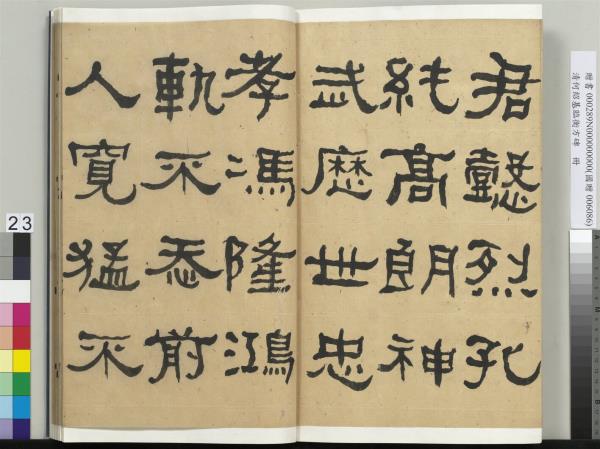 君懿烈孔
純髙朗神
武歷世忠
孝馮隆鴻
軌不忝前
人寬猛不
贈書 000289N000000000(國贈 006086)
清何紹基臨衡方碑 冊
23